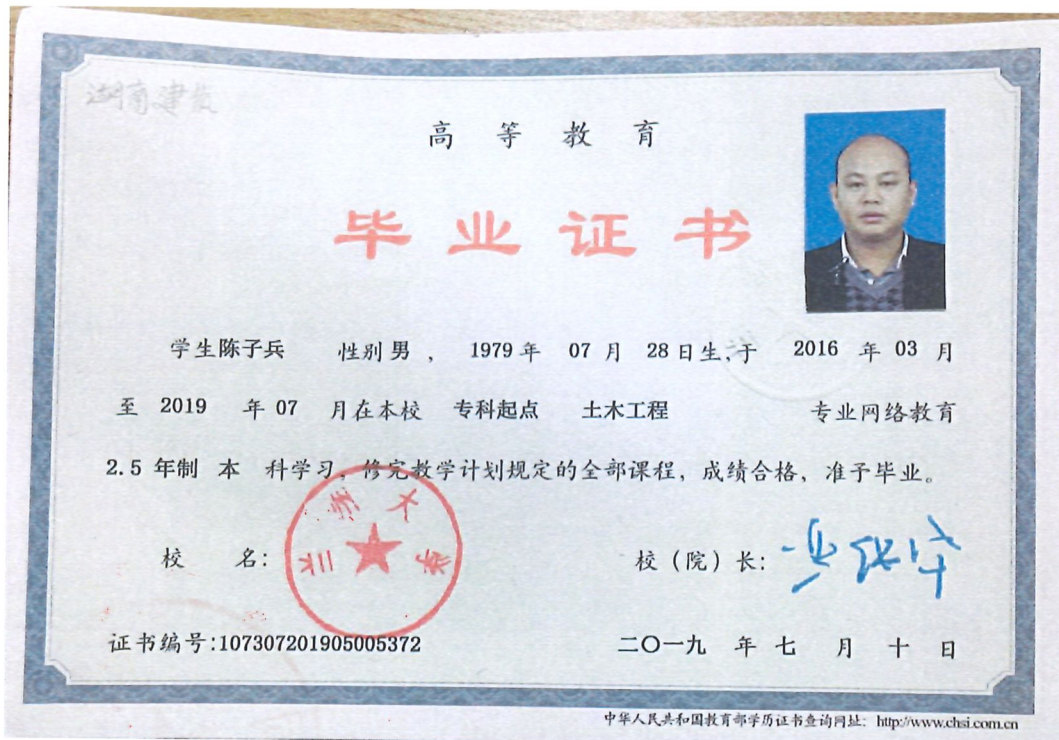 湖南建设
高等教育
毕业证书
学生陈子兵 性别 男 ， 1979 年 07 月 28 日生，于 2016 年 03 月
至 2019 年 07 月在本校 专科起点 土木工程 专业网络教育
2.5 年制 本 科学习，修完教学计划规定的全部课程，成绩合格，准予毕业。
兰州大学
校 名： 校（院）长：
证书编号:107307201905005372 二〇一九 年 七 月 十 日
中华人民共和国教育部学历证书查询网址：http://www.chsi.com.cn